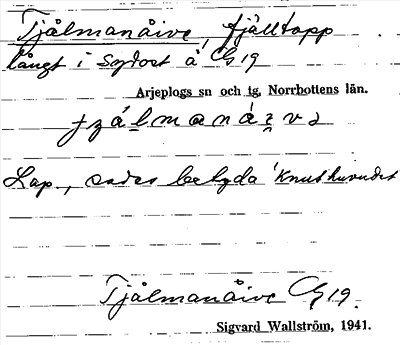 Tjålmanåive, fjälltopp
långt i Sydost å C G 19
Arjeplogs sn och tg, Norrbottens län.
Lap., sades betyda 'Knuthuvudet
Tjålmanåive C G 19.
Sigvard Wallström, 1941.